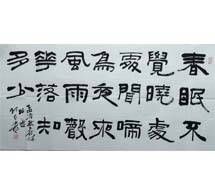 春眠不
覺曉處
處聞啼
鳥夜來
風雨聲
華落知
多少